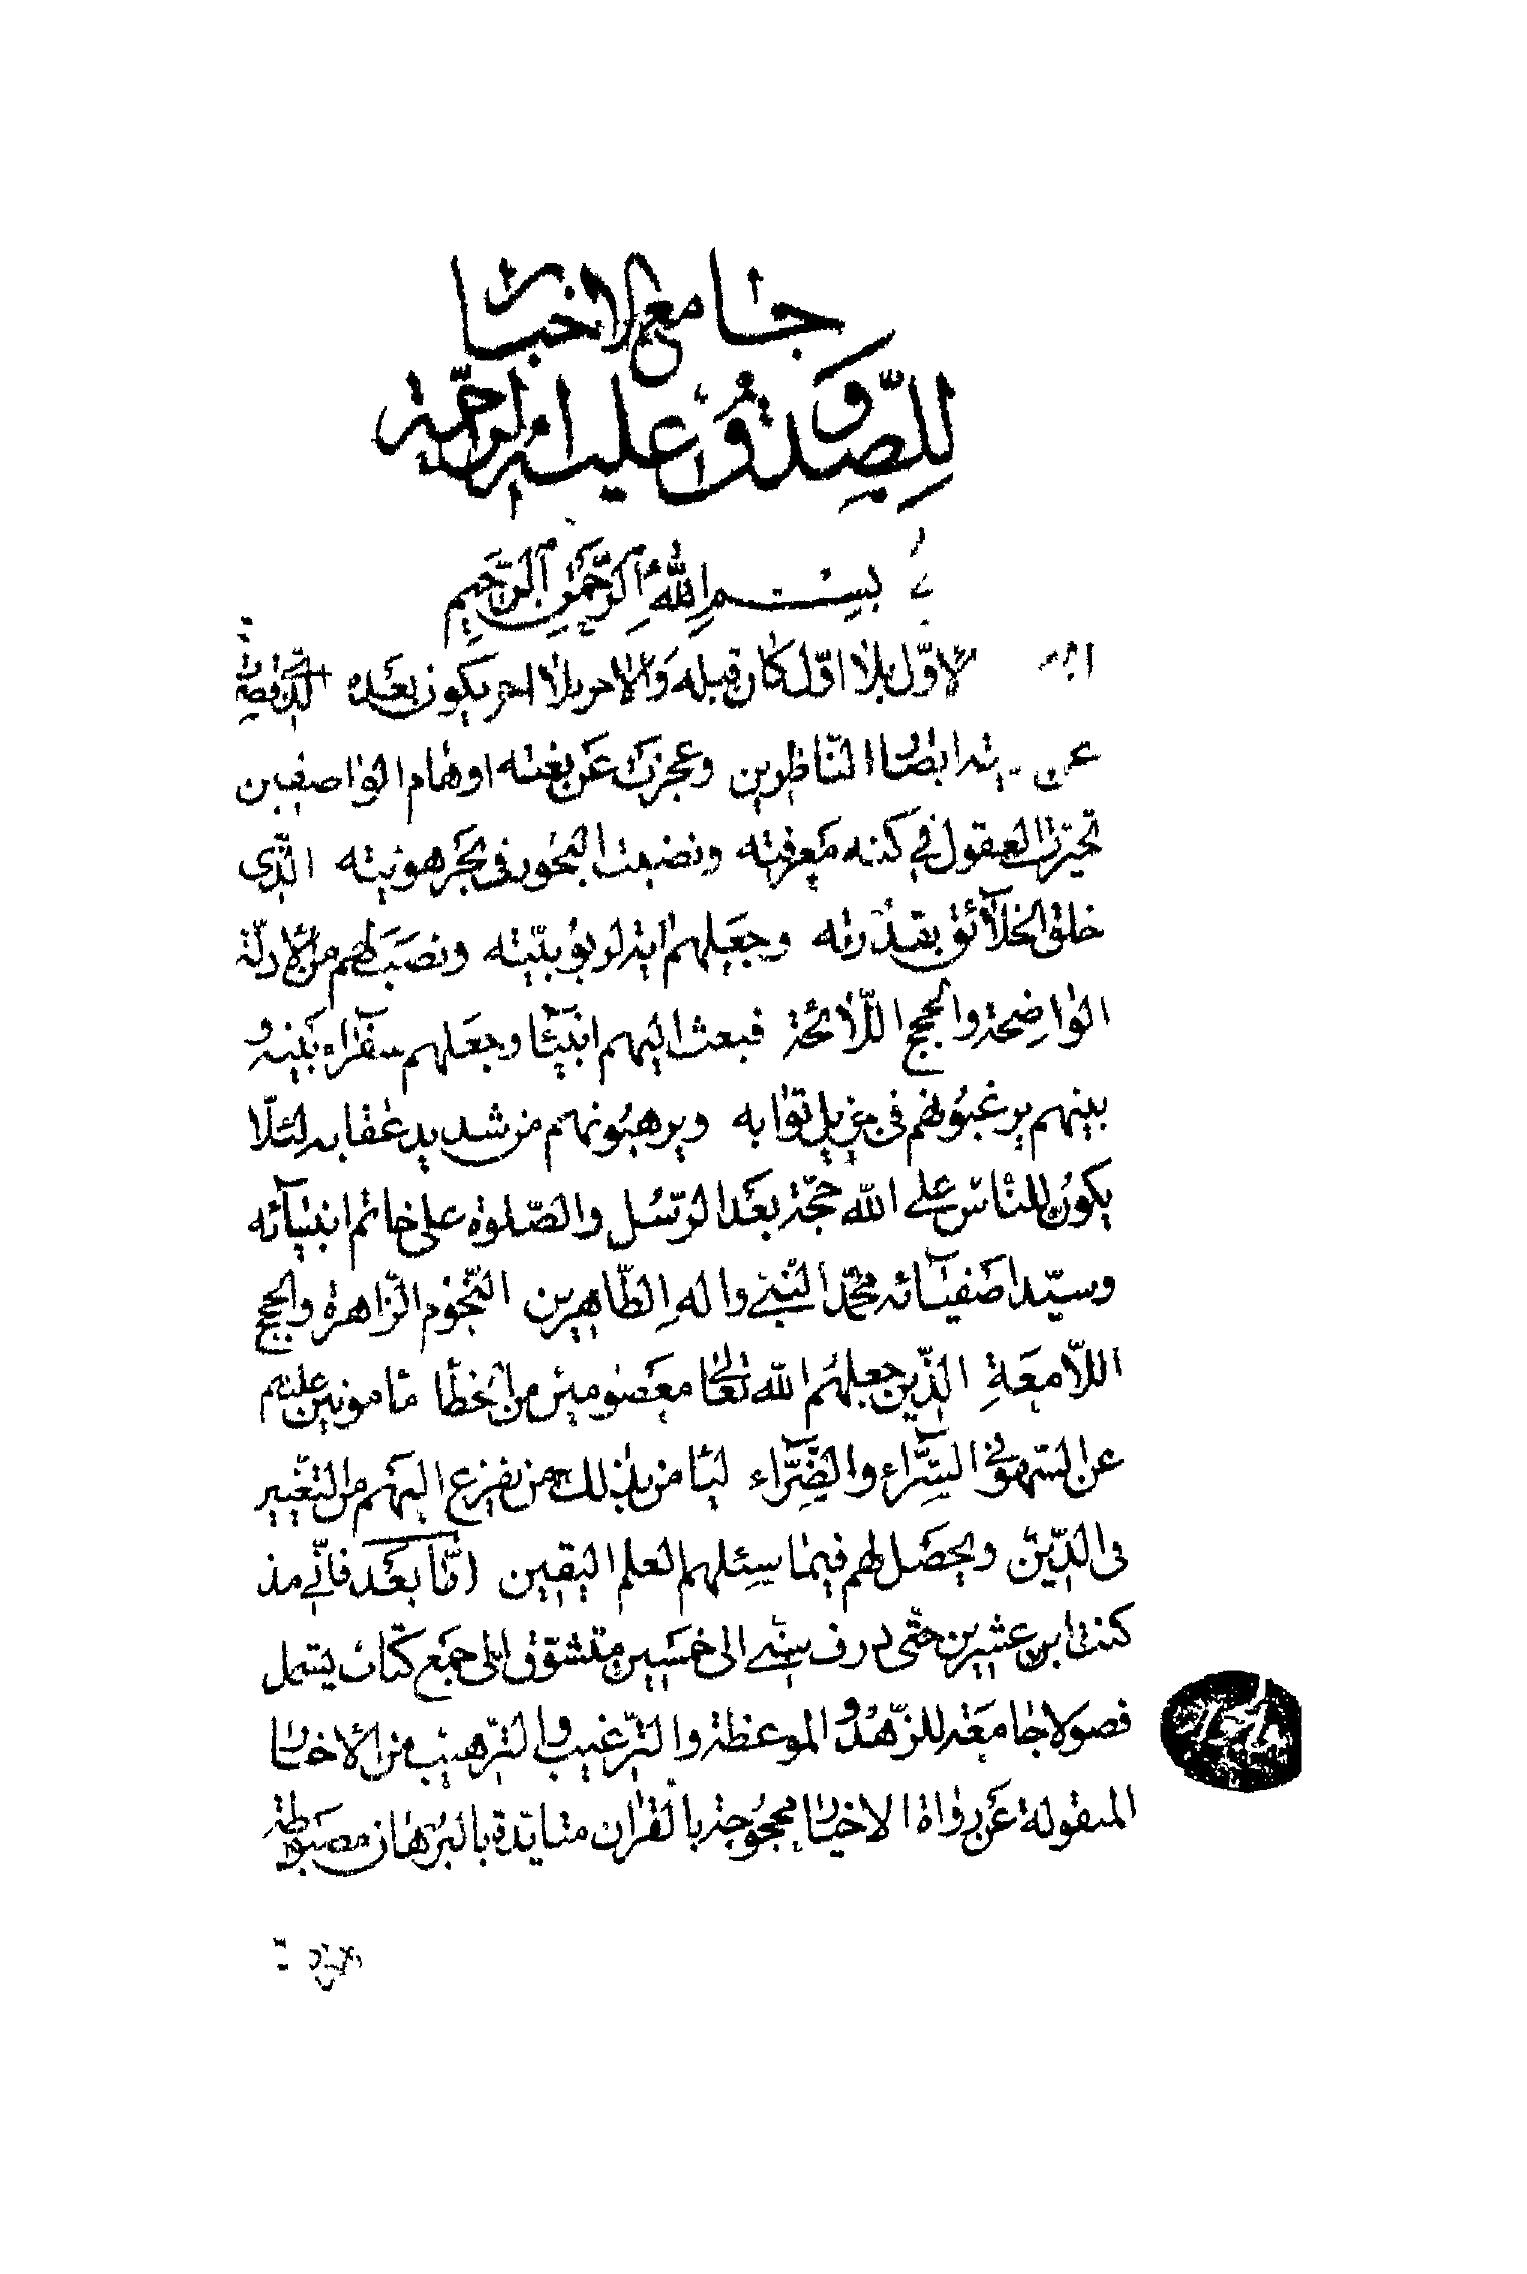 جامع الاخبار
للصدوق عليه الرحمة
بسم الله الرحمن الرحيم
الاوّل بلا اوّل كان قبله والاخر بلا اخر يكون بعده الذى قصرت
عن ابصار الناظرين وعجزت عن نعته اوهام الواصفين
تحيّرت العقول في كنه معرفته ونضبت البحور في بحر هويته الّذى
خلق الخلآئق بقدرته وجعلهم اية لربوبيّته ونصب لهم من الادلّة
الواضحة والحجج اللّائحة فبعث اليهم انبيآء وجعلهم سفرآء بينه و
بينهم يرغبونهم فى جزيل ثوابه ويرهبونهم من شديد عقابه لئلّا
يكون للناس على الله حجّة بعد الرّسل والصّلوة على خاتم انبيآئه
وسيّد اصفيآئه محمّد النّبي واله الطّاهرين النّجوم الزّاهرة والحجج
اللّامعة الّذين جعلهم الله تعالى معصومين من الخطأ مامونين عليهم
عن السّهو في السّرّآء والضّرّآء ليامن بذلك من يفزع اليهم من التغيير
فى الدّين ويحصل لهم فيما سئلهم العلم اليقين امّا بعد فانّي مذ
كنت ابن عشرين حتّى ذرف سنّي الى خمسين متشوق الى جمع كتاب يشمل
فصولا جامعة للزّهد و الموعظة والتّرغيب والتّرهيب من الاخبار
المنقولة عن رواة الاخبار محجوجة بالقران متايدة بالبرهان مضبوطة